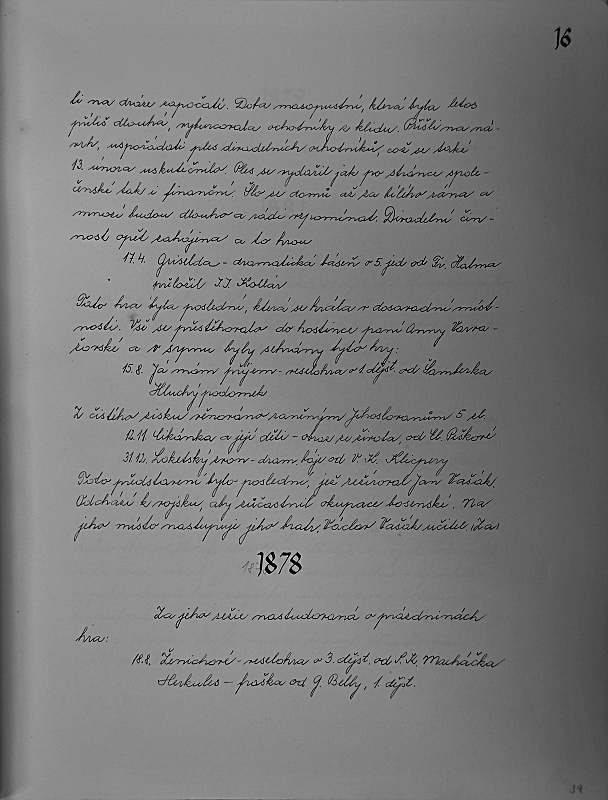 16
li na dráze započatí. Doba masopustní, která byla letos
příliš dlouhá, vyburcovala ochotníky z klidu. Přišli na ná-
vrh, uspořádati ples divadelních ochotníků, což se také
13. února uskutečnilo. Ples se vydařil jak po stránce spole-
čenské tak i finanční. Šlo se domů až za bílého rána a
mnozí budou dlouho a rádi vzpomínat. Divadelní čin-
nost opět zahájena a to hrou
17.4. Griselda - dramatická báseň o 5. jed od Fr. Halma
přeložil J.J. Kollár
Tato hra byla poslední, která se hrála v dosavadní míst-
nosti. Vše se přestěhovalo do hostince paní Anny Vavra-
čovské a v srpnu byly sehrány tyto hry:
15.8. Já mám příjem - veselohra o 1 dějst. od Šamberka
Hluchý podomek
Z čistého zisku věnováno raněným Jihoslovanům 5 zl.
12.11. Cikánka a její děti - obraz ze života, od El. Peškové
31.12. Loketský zvon - dram. báje od V. K. Klicpery
Toto představení bylo poslední, jež režíroval Jan Vašák.
Odchází k vojsku, aby súčastnil okupace bosenské. Na
jeho místo nastupuje jeho bratr, Václav Vašák učitel. (Za)
18 1878
Za jeho režie nastudovaná o prázdninách
hra:
18.8. Ženichové - veselohra o 3. dějst. od S. K. Macháčka
Herkules - fraška od G. Belly, 1. dějst.
39